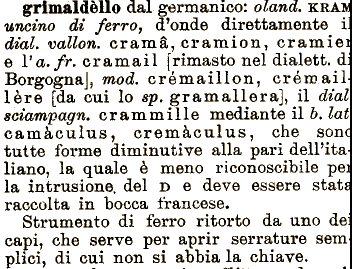 grimaldèllo dal germanico: oland. KRAM
uncino di ferro, d'onde direttamente il
dial. vallon. cramâ, cramion, cramier
e l'a. fr. cramail [rimasto nel dialett. di
Borgogna], mod. crémaillon, crémail-
lère [da cui lo sp. gramallera], il dial
sciampagn. crammille mediante il b. lat
camàculus, cremàculus, che sono
tutte forme diminutive alla pari dell'ita-
liano, la quale è meno riconoscibile per
la intrusione del D e deve essere stata
raccolta in bocca francese.
Strumento di ferro ritorto da uno dei
capi, che serve per aprir serrature sem-
plici, di cui non si abbia la chiave.